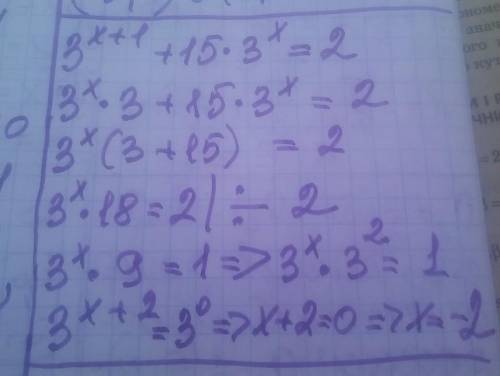 3^{x+1} + 15 · 3^x = 2
3^x · 3 + 15 · 3^x = 2
3^x (3 + 15) = 2
3^x · 18 = 2 | ÷ 2
3^x · 9 = 1 => 3^x · 3^2 = 1
3^{x+2} = 3^0 => x+2=0 => x=-2